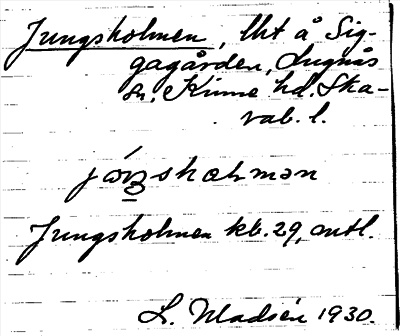 Jungsholmen, lht å Sig-
gagården, Lugnås
sn, Kinne hd. Ska-
rab. l.
Jungsholmen kb. 29, antl.
L. Madsén 1930.